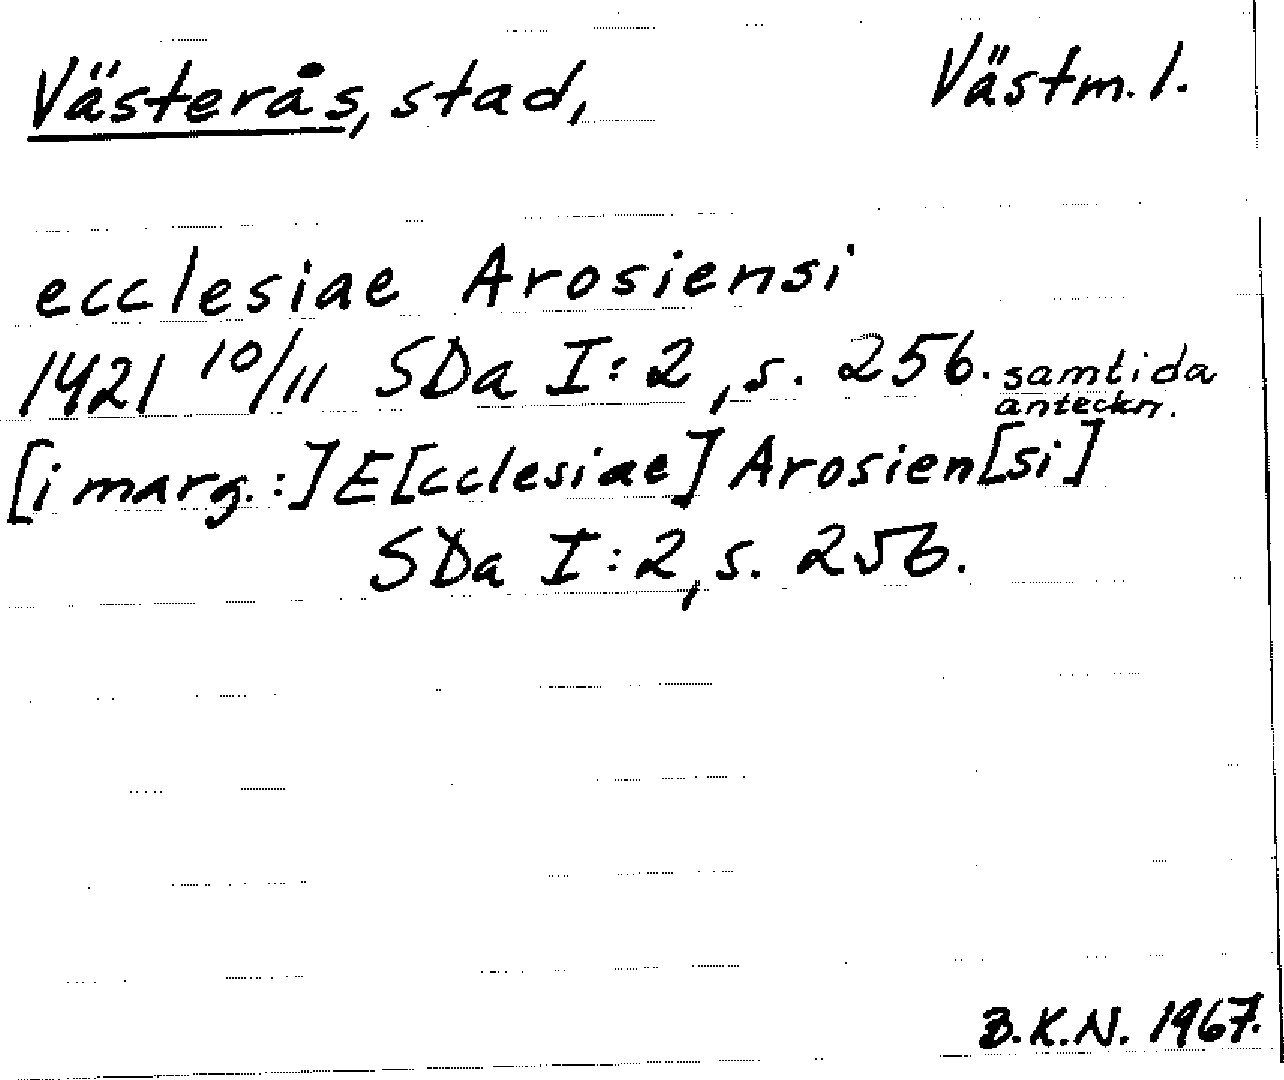 Västerås, stad, Västm. l.
ecclesiae Arosiensi
1421 10/11 SDa I:2, s. 256. samtida anteckn.
[i marg.:] E[cclesiae] Arosien[si]
SDa I:2, s. 256.
B.K.N. 1967.